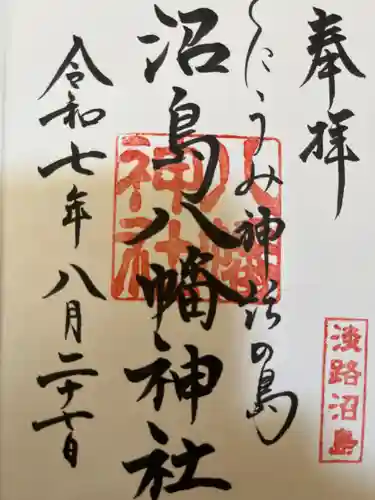 奉拝
くにうみ神話の島
沼島八幡神社
令和七年八月二十七日
八幡
神社
淡路沼島